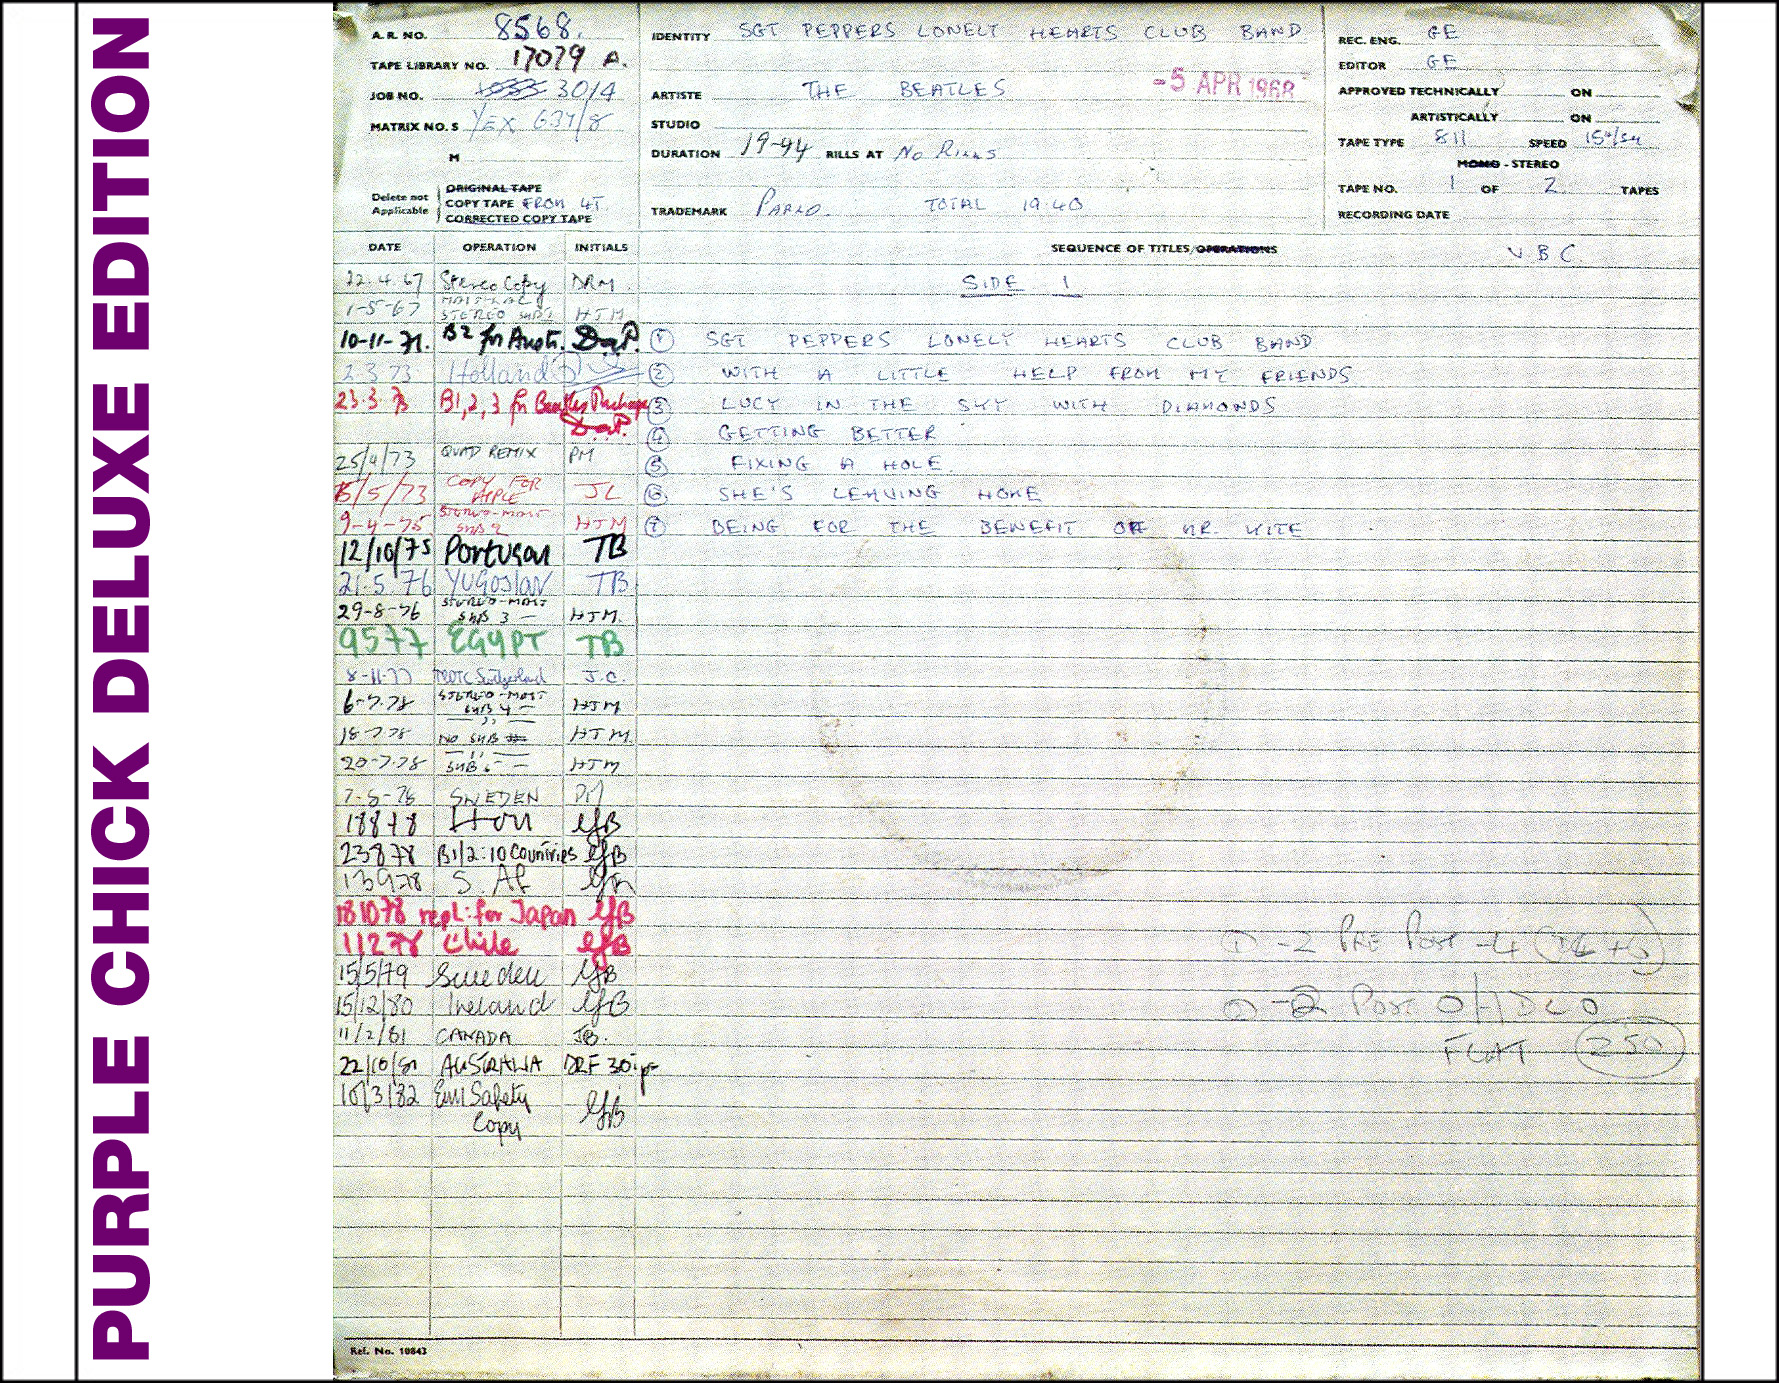 PURPLE CHICK DELUXE EDITION
A.R. NO. 8568.
TAPE LIBRARY NO. 17079 A.
JOB NO. 3014
MATRIX NO. S YEX 637/8
M
Delete not Applicable
ORIGINAL TAPE
COPY TAPE FROM 4T.
CORRECTED COPY TAPE
IDENTITY SGT PEPPERS LONELY HEARTS CLUB BAND
ARTISTE THE BEATLES -5 APR 1968
STUDIO
DURATION 19-44 RILLS AT No RILLS
TRADEMARK PARLO. TOTAL 19.40
REC. ENG. GE
EDITOR GE
APPROVED TECHNICALLY ON
ARTISTICALLY ON
TAPE TYPE 811 SPEED 15"/sec
MONO - STEREO
TAPE NO. 1 OF 2 TAPES
RECORDING DATE
DATE OPERATION INITIALS SEQUENCE OF TITLES/OPERATIONS
V.B.C.
SIDE 1
22.4.67 Stereo Copy DRM.
1-5-67 STEREO HTM
10-11-71. B2 for Aust. D.a.P.
2 3 73 Holland
23.3.73 B1,2,3 for Beatles Package D.a.P.
25/4/73 QUAD REMIX PM
5/73 COPY FOR APPLE JL
9-4-75 STEREO-MAST SUB 2 HTM
12/10/75 Portugal TB
21.5.76 YUGOSLAV TB
29-8-76 STEREO-MAST SUB 3 — HTM.
9577 EGYPT TB
8-11-77 Switzerland J.C.
6-7.78 STEREO-MAST SUB 4 — HTM
18-7-78 — " — NO SUB HTM.
20-7-78 — " — SUB — HTM
7-8-78 SWEDEN PM
18878 EFB
23878 B1/2:10 Countries EFB
13978 S. Af
181078 repl: for Japan EFB
11278 Chile EFB
15/5/79 Sweden EFB
15/12/80 Ireland EFB
11/2/81 CANADA JB.
22/10/81 AUSTRALIA DRF 30ips
10/3/82 EMI Safety Copy EFB
① SGT PEPPERS LONELY HEARTS CLUB BAND
② WITH A LITTLE HELP FROM MY FRIENDS
③ LUCY IN THE SKY WITH DIAMONDS
④ GETTING BETTER
⑤ FIXING A HOLE.
⑥ SHE'S LEAVING HOME
⑦ BEING FOR THE BENEFIT OF MR. KITE
① -2 PRE POST -4
-2 POST
FLAT 250
Ref. No. 10843